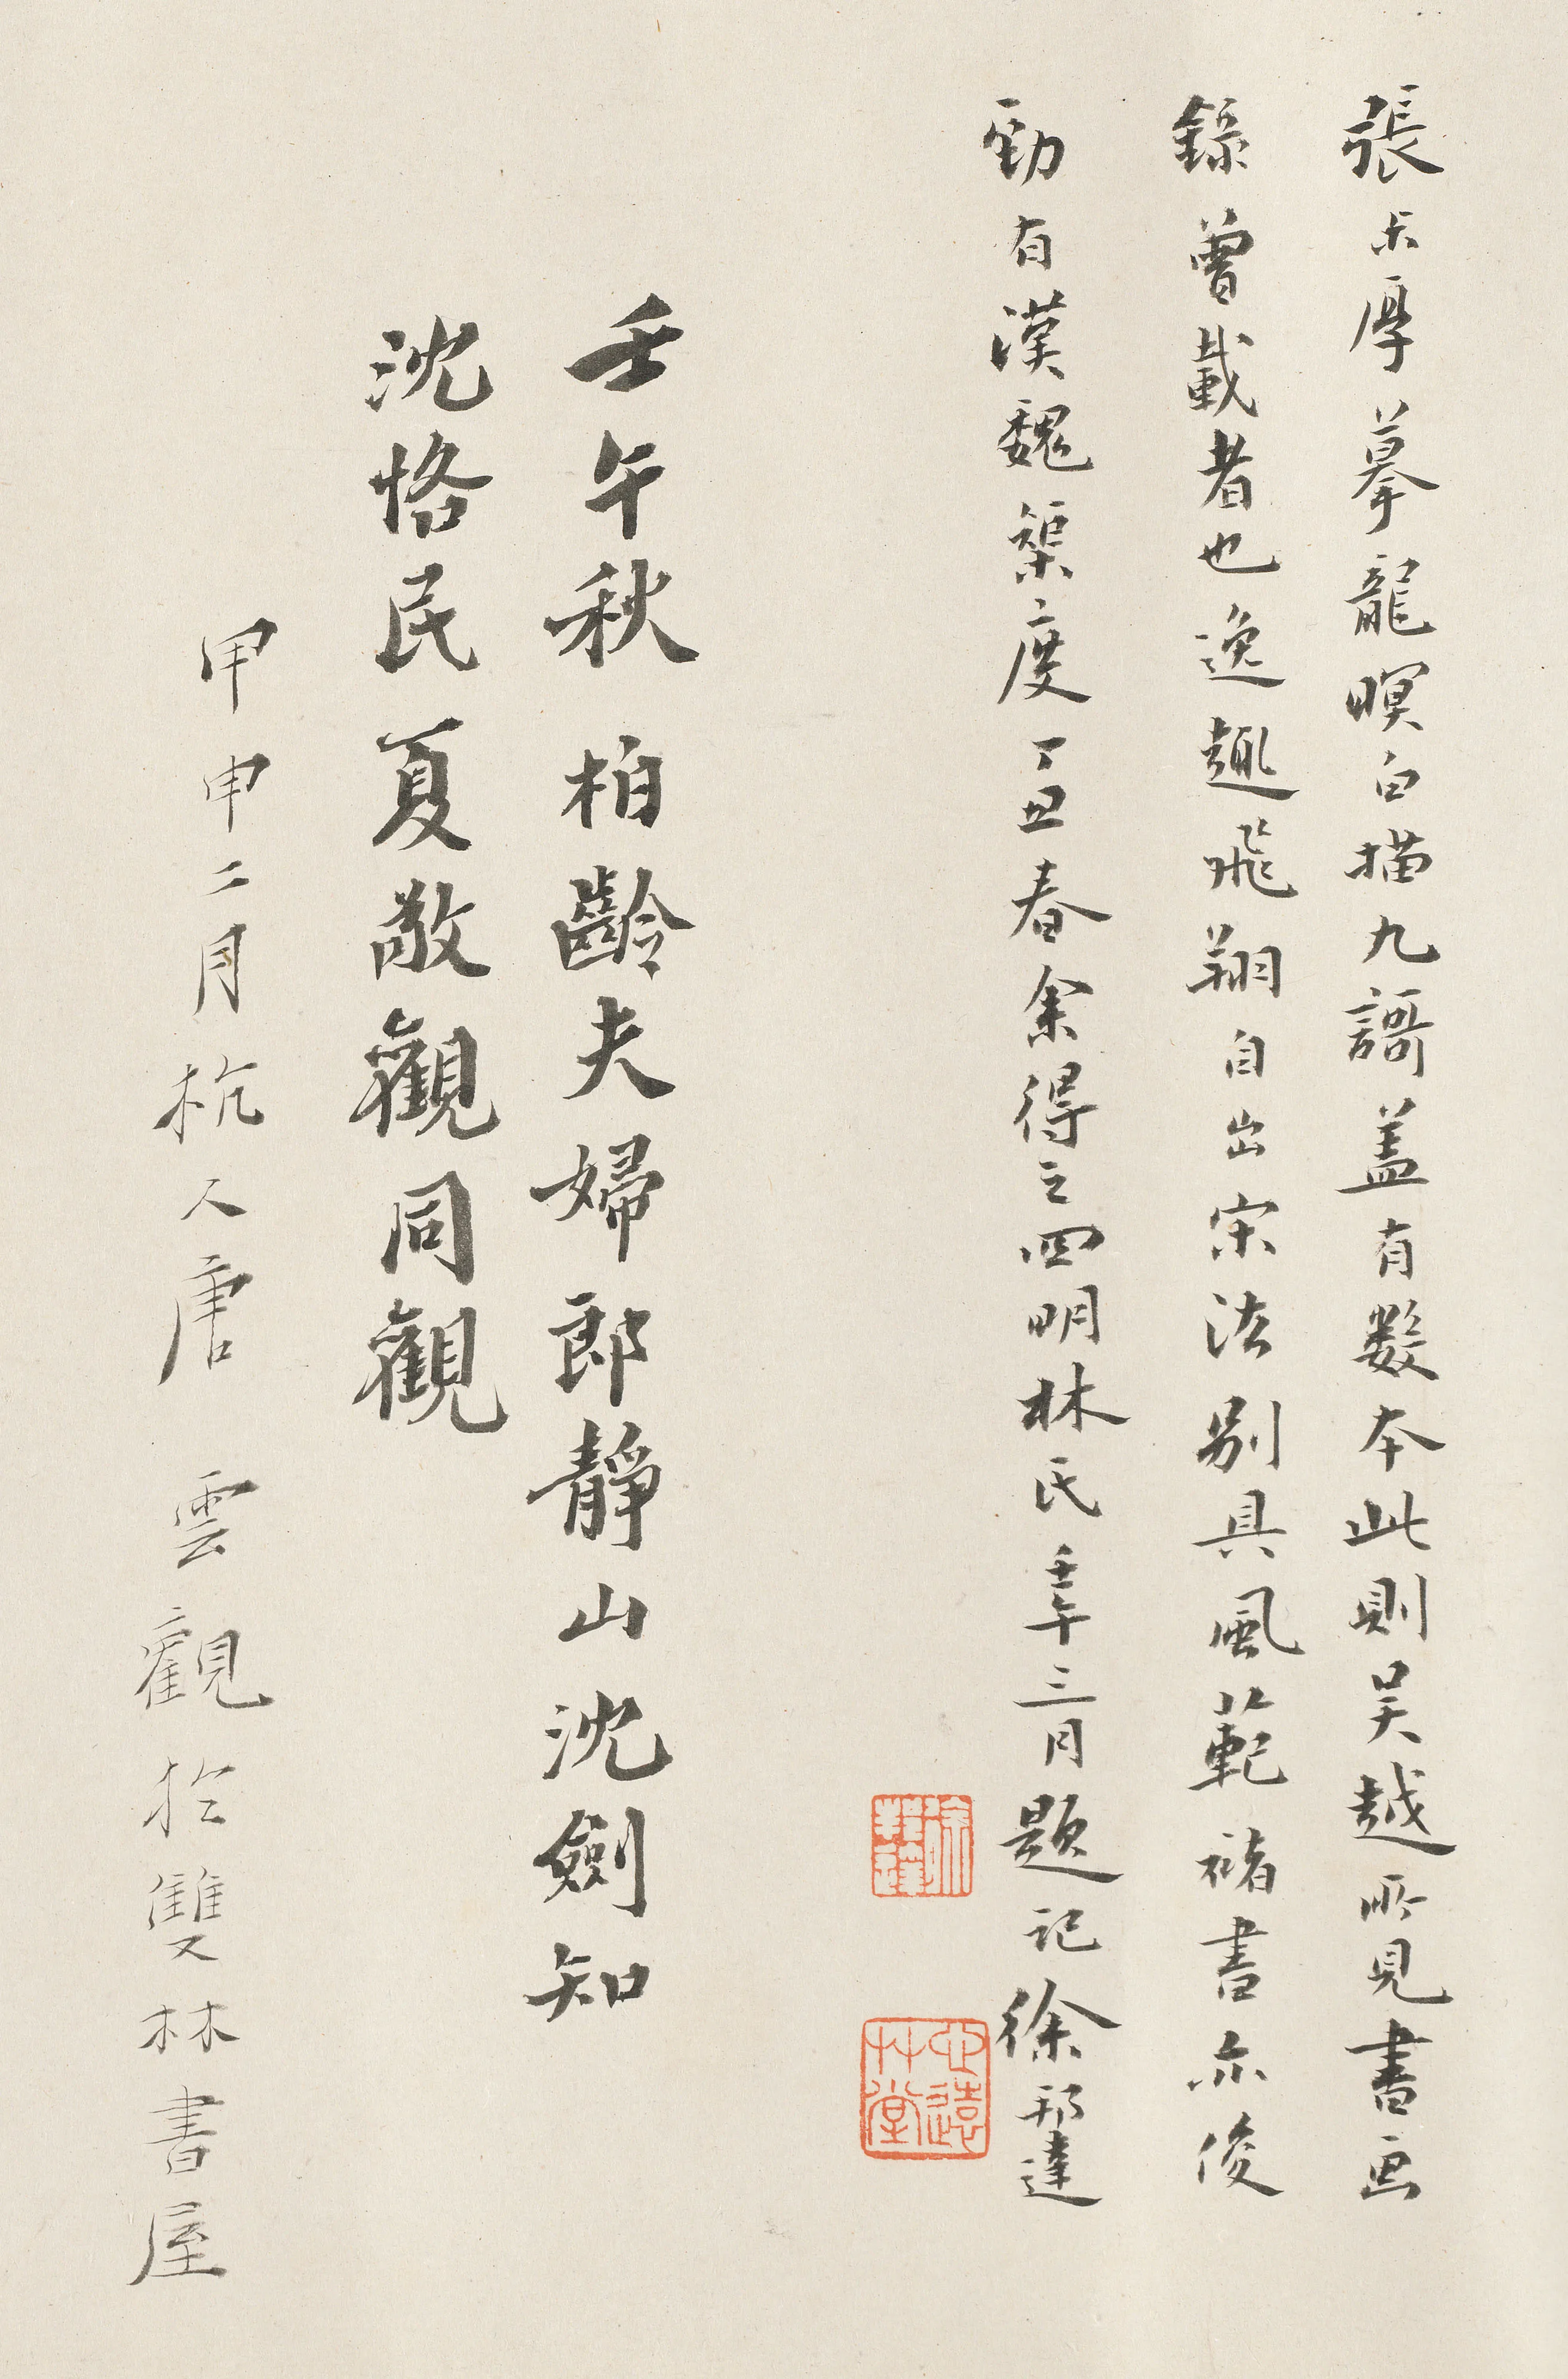 張尗厚摹龍暝白描九謌蓋有數本此則吴越所見書画
錄曾載者也逸趣飛翔自出宋法别具風範褚書亦俊
勁有漢魏榘度丁丑春余得之四明林氏壬午三月題記徐邦達
心遠艸堂
壬午秋柏齡夫婦郎靜山沈劍知
沈恪民夏敬觀同觀
甲申二月杭人唐雲觀於雙林書屋